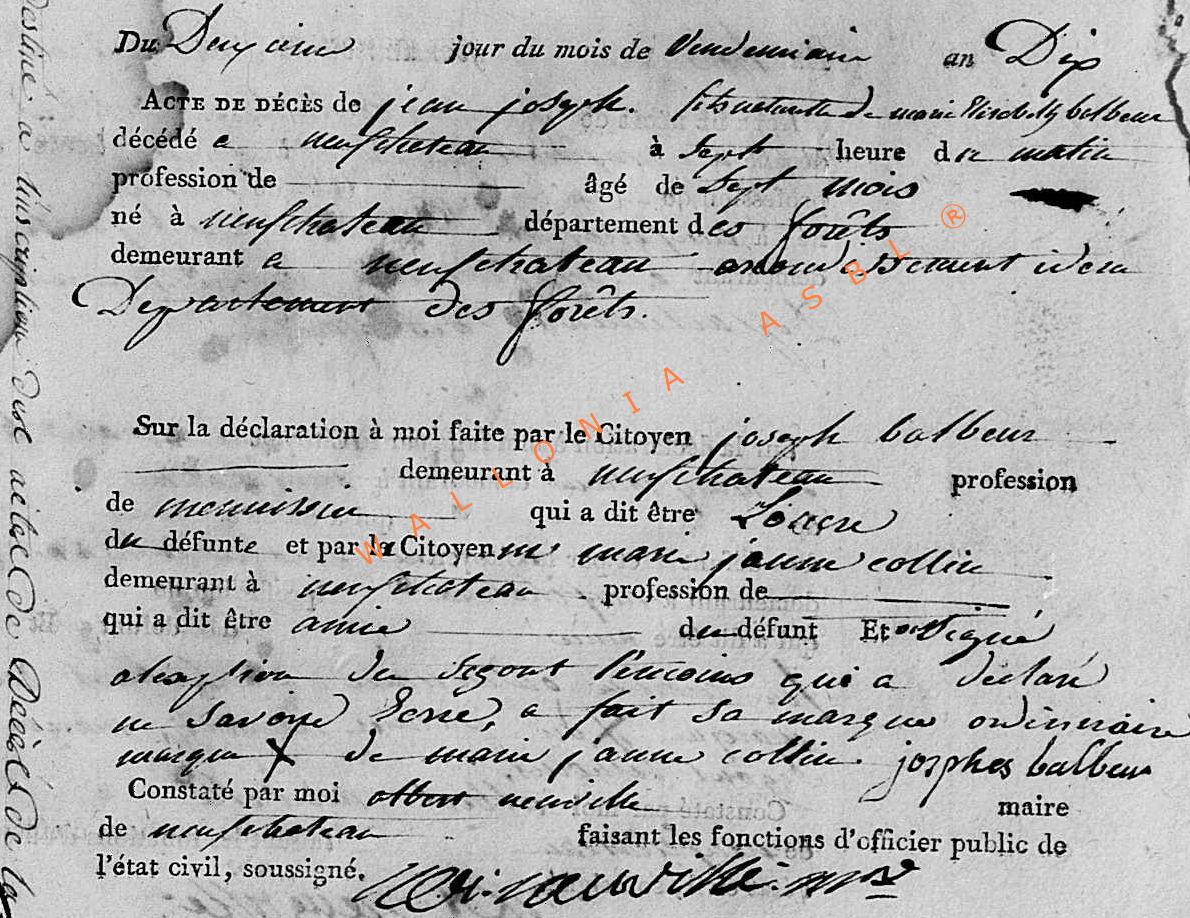 Du Deuxieme jour du mois de Vendemiaire an Dix
ACTE DE DÉCÈS de jean joseph. fils naturelle de marie Elisabeth balbeur
décédé a neufchateau à sept heure du matin
profession de âgé de Sept mois
né à neufchateau département des forêts
demeurant a neufchateau arrondissement idem
Departement des forêts.
Sur la déclaration à moi faite par le Citoyen joseph balbeur
demeurant à neufchateau profession
de menuisier qui a dit être
du défunte et par la Citoyenne marie janne collin
demeurant à neufchateau profession de
qui a dit être amie du défunt Et ont signé
a lexeption du segont temoins qui a declaré
ne savoire Ecrire, a fait sa marque ordinnaire
marque X de marie janne collin. josphes balbeur
Constaté par moi neuville maire
de neufchateau faisant les fonctions d'officier public de
l'état civil, soussigné. neuville
WALLONIA ASBL ®
acte de Décès de